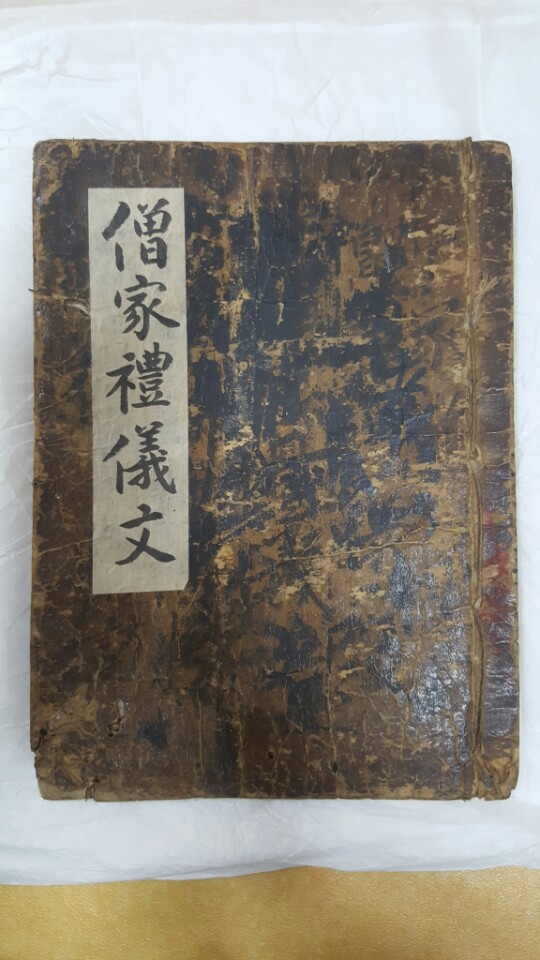 僧家禮儀文